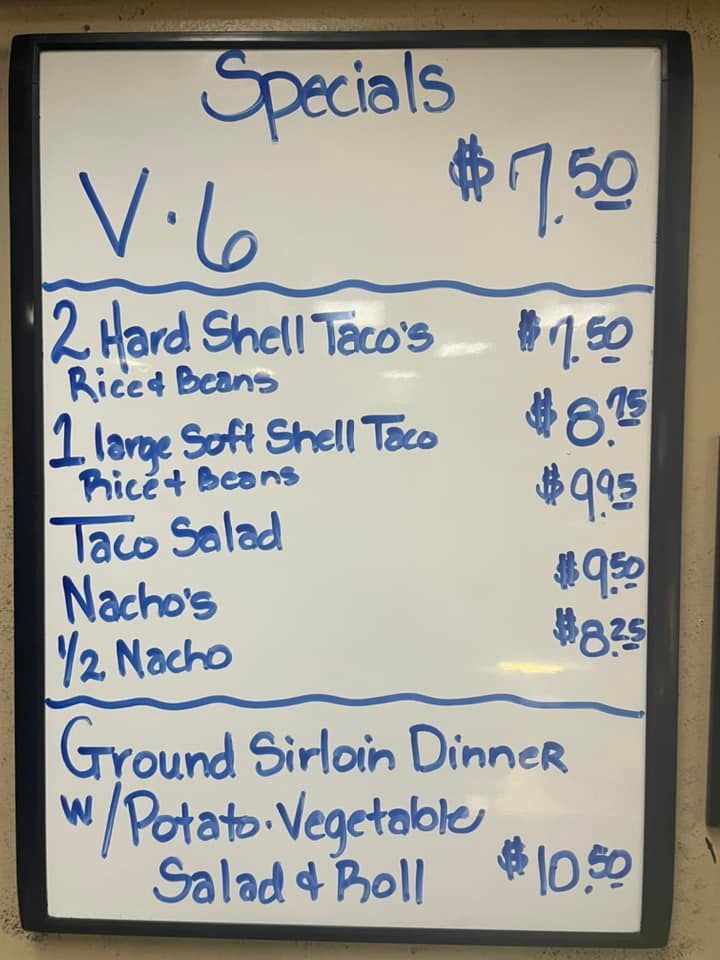 Specials
V.6 $7.50
2 Hard Shell Taco's $7.50
Rice & Beans
1 large Soft Shell Taco $8.75
Rice + Beans
Taco Salad $9.95
Nacho's $9.50
1/2 Nacho $8.25
Ground Sirloin Dinner
w/Potato. Vegetable
Salad & Roll $10.50